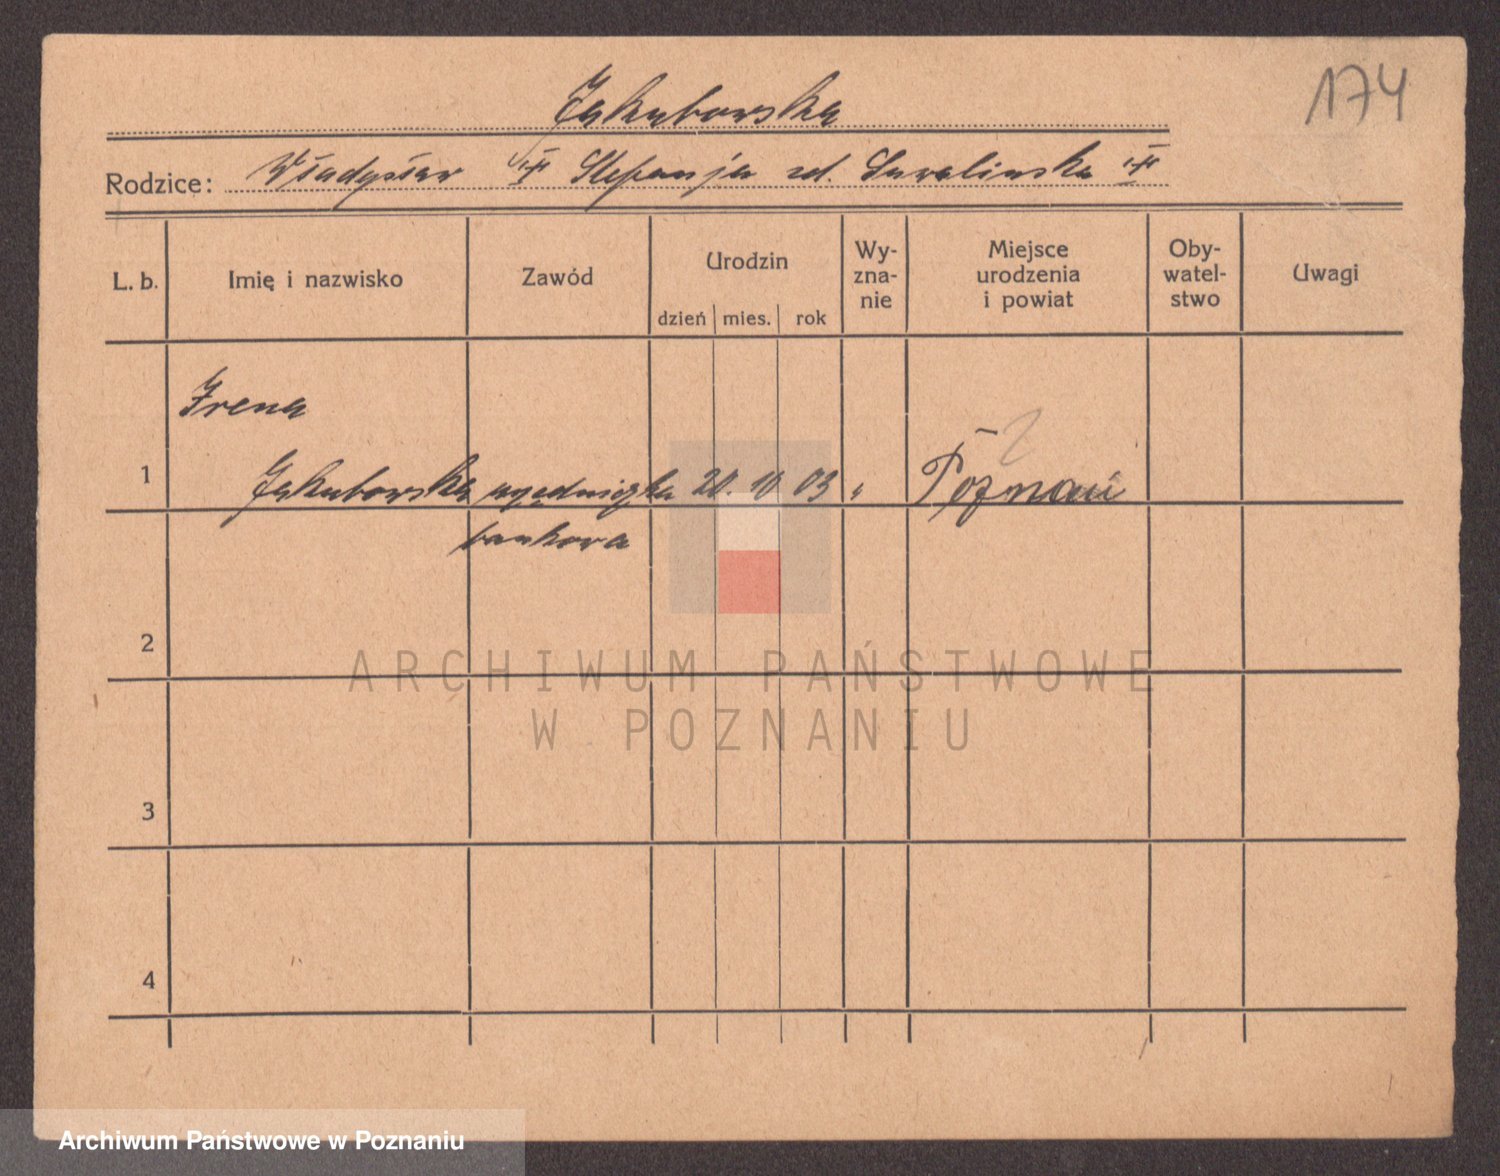 174
Jakubowska
Rodzice: Władysław Stefanja zd.
L. b. Imię i nazwisko Zawód Urodzin dzień mies. rok Wy-zna-nie Miejsce urodzenia i powiat Oby-watel-stwo Uwagi
Irena
1 Jakubowska urzędniczka 20. 10 03 " Poznań
bankowa
2
ARCHIWUM PAŃSTWOWE
W POZNANIU
3
4
Archiwum Państwowe w Poznaniu